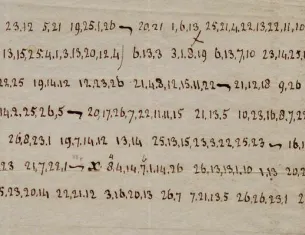 23,12 5,21 19,25,1,26 20,21 1,6,13 25,21,4,22,13,22,11,10
13,15,25,4,1,3,13,20,12,4 6,13,3 3,1,8,19 6,13,7,10 23,14,25,1
22,25 19,14,12 12,23,26 21,4,8,12,15,11,22 21,12,18 9,26
14,2,25,26,5 20,17,26,7,22,11,11,15 21,13,5 10,23,16,8,7,2
26,8,23,1 19,7,14,12 13,14 25,13,15,23,3,22,25,23 16,1
23 21,7,22,1 x 8,4,14,7,1,14,26 26,13,13,1,10 1,13 20,2
5,23,20,14 22,21,12 3,16,20,13 26,7 7,21,13,5 26,26,23,1 2